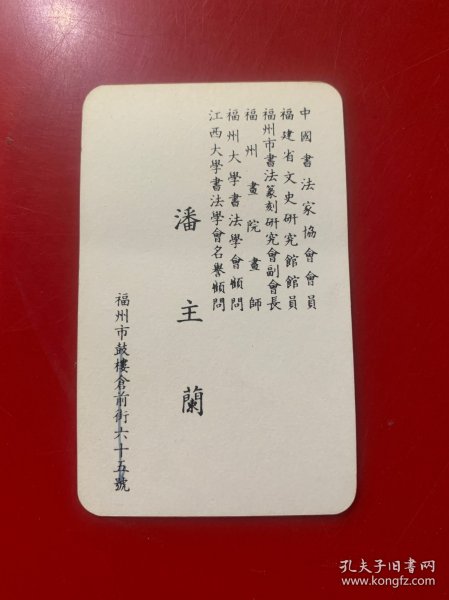 中國書法家協會會員
福建省文史研究館館員
福州市書法篆刻研究會副會長
福州畫院畫師
福州大學書法學會顧問
江西大學書法學會名譽顧問
潘主蘭
福州市鼓樓倉前街六十五號
孔夫子旧书网
www.kongfz.com